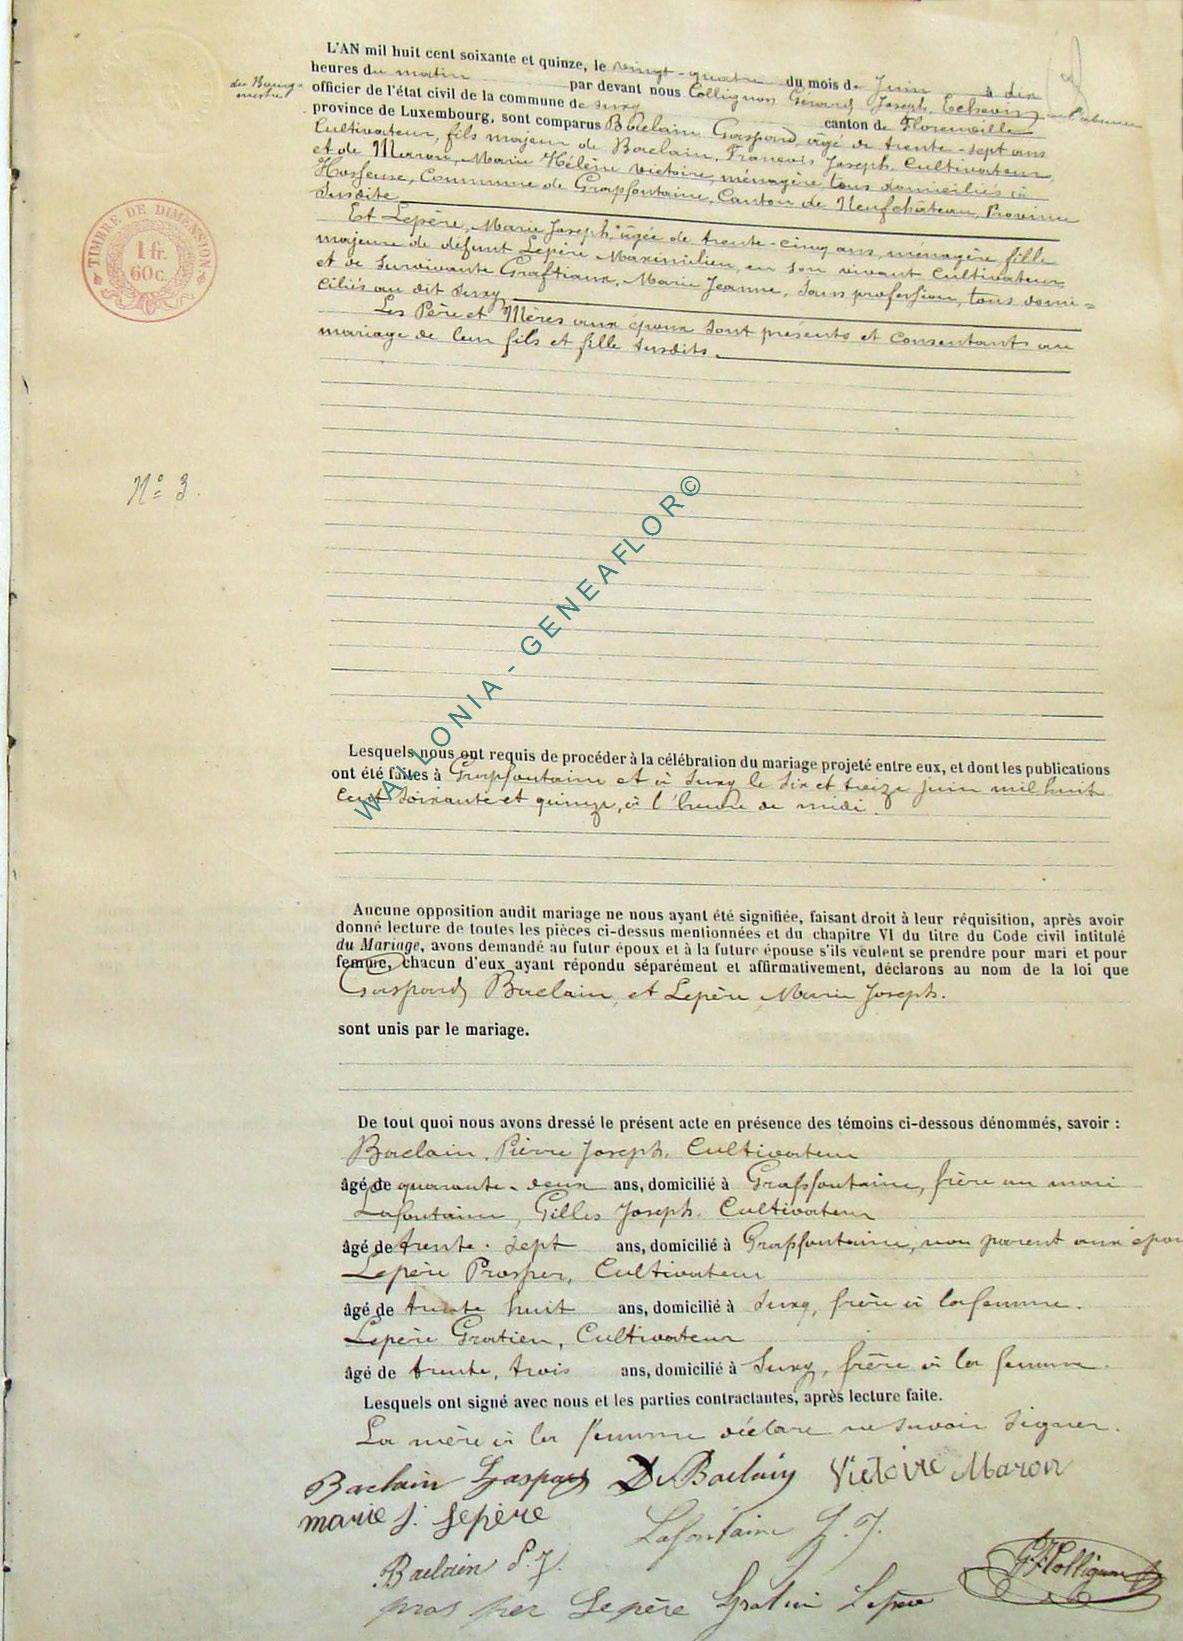 L'AN mil huit cent soixante et quinze, le vingt-quatre du mois de Juin à dix
heures du matin par devant nous Collignon Gérard Joseph, Echevin, en l'absence
du Bourg-
mestre
officier de l'état civil de la commune de Suxy canton de Florenville
province de Luxembourg, sont comparus Baclain Gaspard, âgé de trente-sept ans
Cultivateur, fils majeur de Baclain, François Joseph, Cultivateur
et de Maron, Marie Hélène Victoire, ménagère, tous domiciliés à
Hosseuse, Commune de Grapfontaine, Canton de Neufchâteau, Province
susdite.
Et Lepère, Marie Joseph, âgée de trente-cinq ans, ménagère, fille
majeure de défunt Lepère Maximilien, en son vivant Cultivateur
et de survivante Graftiaux, Marie Jeanne, sans profession, tous domi=
ciliés au dit Suxy
Les Père et Mères aux époux sont présents et consentants au
mariage de leur fils et fille susdits.
TIMBRE DE DIMENSION
1 fr.
60 c.
N° 3.
WALLONIA - GENEAFLOR©
Lesquels nous ont requis de procéder à la célébration du mariage projeté entre eux, et dont les publications
ont été faites à Grapfontaine et à Suxy le six et treize Juin mil huit
Cent soixante et quinze, à l'heure de midi.
Aucune opposition audit mariage ne nous ayant été signifiée, faisant droit à leur réquisition, après avoir
donné lecture de toutes les pièces ci-dessus mentionnées et du chapitre VI du titre du Code civil intitulé
du Mariage, avons demandé au futur époux et à la future épouse s'ils veulent se prendre pour mari et pour
femme, chacun d'eux ayant répondu séparément et affirmativement, déclarons au nom de la loi que
Gaspard Baclain, et Lepère, Marie Joseph.
sont unis par le mariage.
De tout quoi nous avons dressé le présent acte en présence des témoins ci-dessous dénommés, savoir :
Baclain, Pierre Joseph, Cultivateur
âgé de quarante-deux ans, domicilié à Grapfontaine, frère au mari
Lafontaine, Gilles Joseph, Cultivateur
âgé de trente-sept ans, domicilié à Grapfontaine, non parent aux époux
Lepère Prosper, Cultivateur
âgé de trente huit ans, domicilié à Suxy, frère à la femme.
Lepère Gratien, Cultivateur
âgé de trente, trois ans, domicilié à Suxy, frère à la femme.
Lesquels ont signé avec nous et les parties contractantes, après lecture faite.
La mère à la femme déclare ne savoir signer.
Baclain Gaspard Baclain Victoire Maron
marie j. Lepère Lafontaine G. J.
Baclain P. J. Collignon
pros per Lepère Gratien Lepère